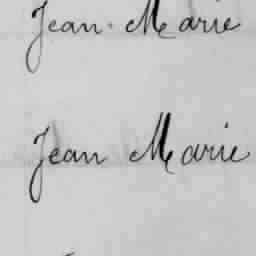 Jean-Marie
Jean Marie